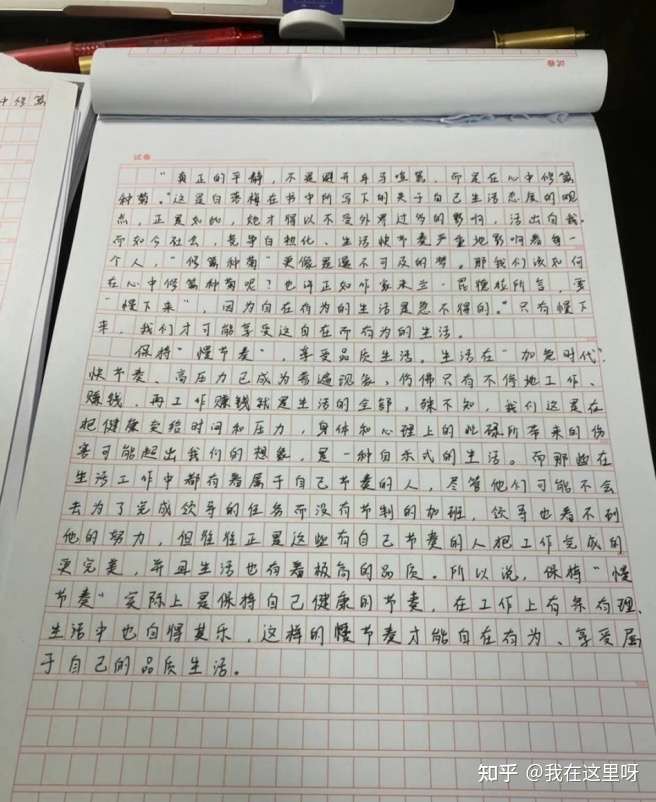 中修篱
试卷
"真正的平静,不是避开车马喧嚣,而是在心中修篱
种菊。"这是白落梅在书中所写下的关于自己生活态度的观
点,正是如此,她才得以不受外界过多的影响,活出自我。
而如今社会,竞争白热化、生活快节奏严重地影响着每一
个人,"修篱种菊"更像是遥不可及的梦。那我们该如何
在心中修篱种菊呢?也许正如作家米兰·昆德拉所言,要
"慢下来",因为自在有为的生活是急不得的。"只有慢下
来,我们才可能享受这自在而有为的生活。
保持"慢节奏",享受品质生活。生活在"加急时代",
快节奏、高压力已成为普遍现象,仿佛只有不停地工作、
赚钱、再工作赚钱就是生活的全部。殊不知,我们这是在
把健康交给时间和压力,身体和心理上的 所带来的伤
害可能超出我们的想象,是一种自杀式的生活。而那些在
生活工作中都有着属于自己节奏的人,尽管他们可能不会
去为了完成领导的任务而没有节制的加班,领导也看不到
他的努力,但往往正是这些有自己节奏的人把工作完成的
更完美,并且生活也有着极高的品质。所以说,保持"慢
节奏"实际上是保持自己健康的节奏,在工作上有条有理、
生活中也自得其乐,这样的慢节奏才能自在有为、享受属
于自己的品质生活。
知乎 @我在这里呀